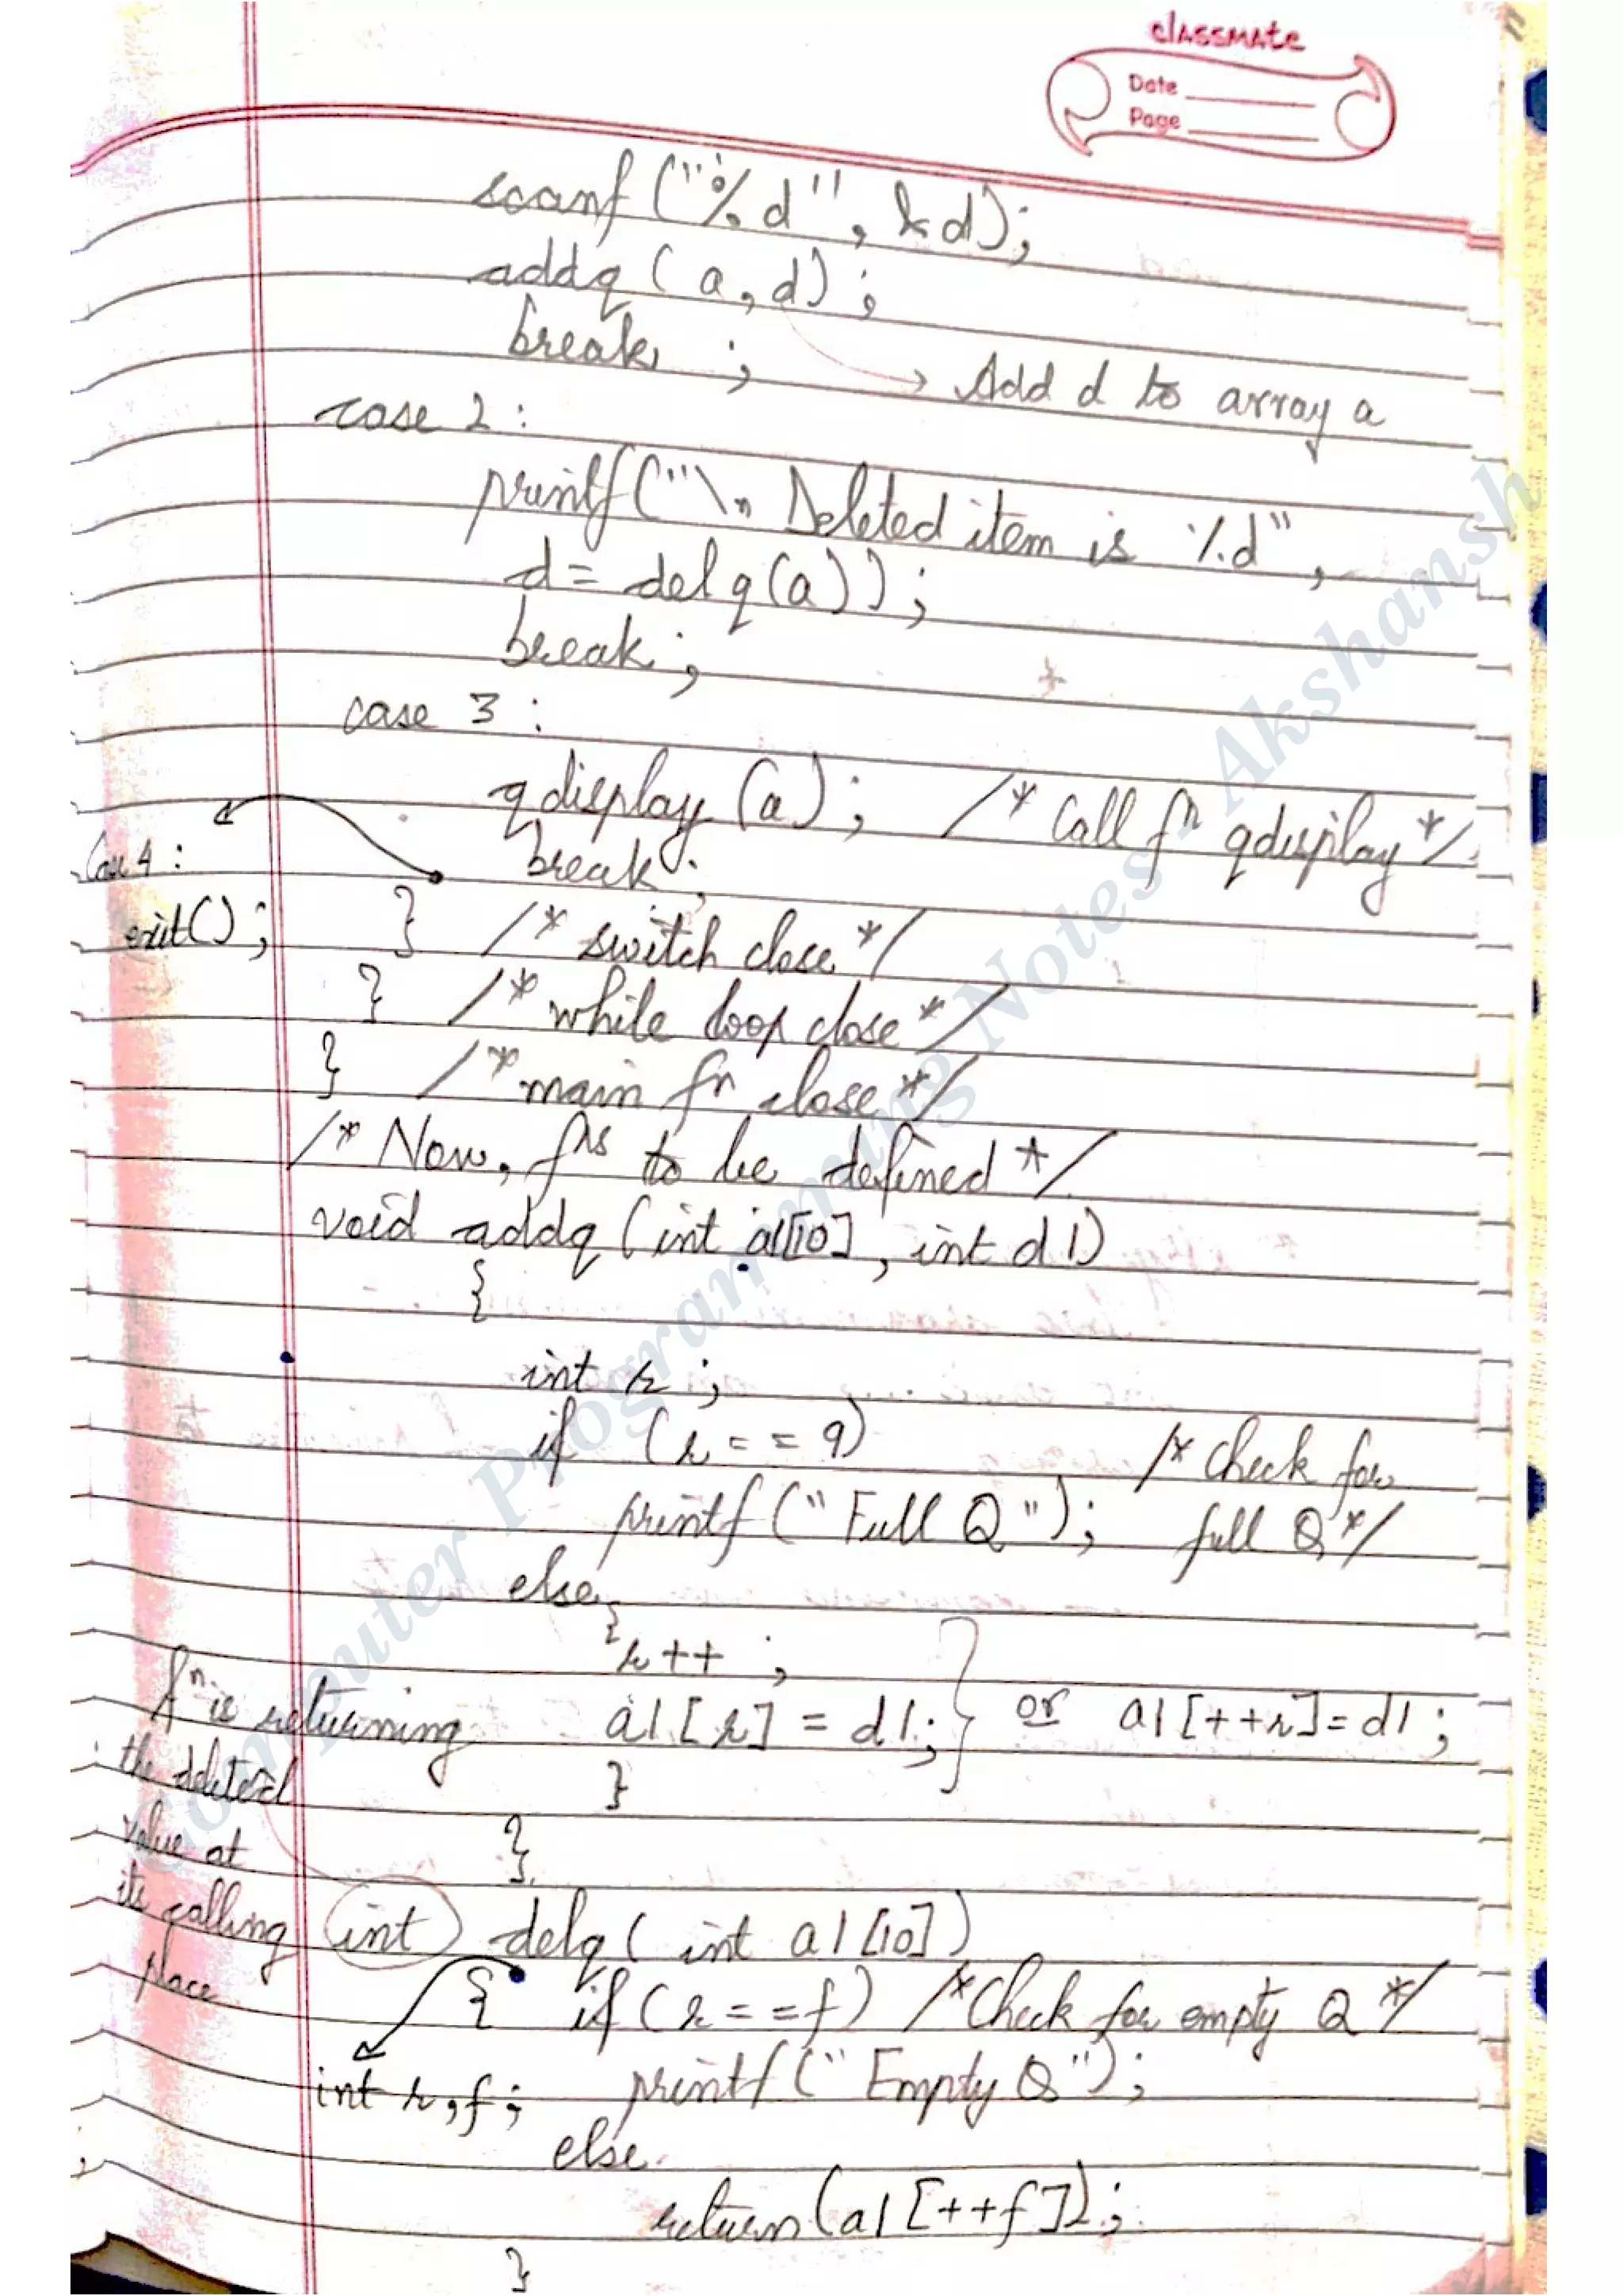 classmate
Date
Page
scanf ("%d", &d);
addq (a, d);
break;
→ Add d to array a
case 2:
printf("\n Deleted item is %d",
d = delq(a));
break;
case 3:
qdisplay (a); /* Call fn qdisplay */
break;
Case 4:
exit();
} /* switch close */
} /* while loop close */
} /* main fn close */
/* Now, fns to be defined */
void addq (int a1[10], int d1)
{
int r;
if (r == 9) /* Check for
printf ("Full Q"); full Q */
else
{ r++;
a1[r] = d1; } or a1[++r] = d1;
}
}
fn is returning
the deleted
value at
its calling
place
int delq( int a1[10])
{ if (r == f) /* Check for empty Q */
int r, f;
printf ("Empty Q");
else
return(a1[++f]);
}
Computer Programming Notes - Akshansh